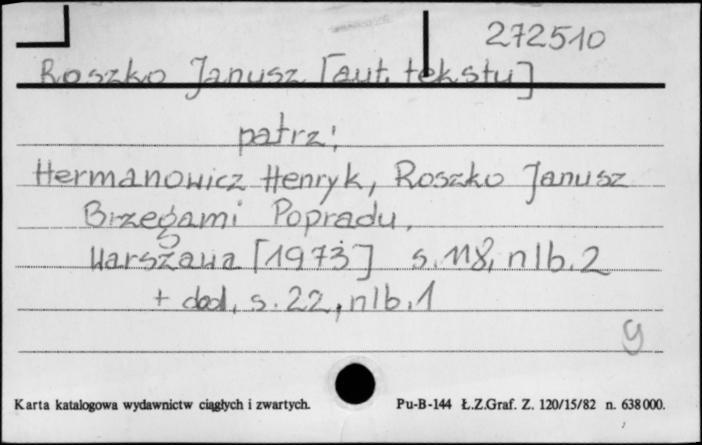 272510
Roszko Janusz [aut. tekstu]
patrz:
Hermanowicz Henryk, Roszko Janusz
Brzegami Popradu.
Warszawa [1973] s. 118, nlb. 2
+ dod. s. 22, nlb. 1
g
Karta katalogowa wydawnictw ciągłych i zwartych. Pu-B-144 Ł.Z.Graf. Z. 120/15/82 n. 638000.